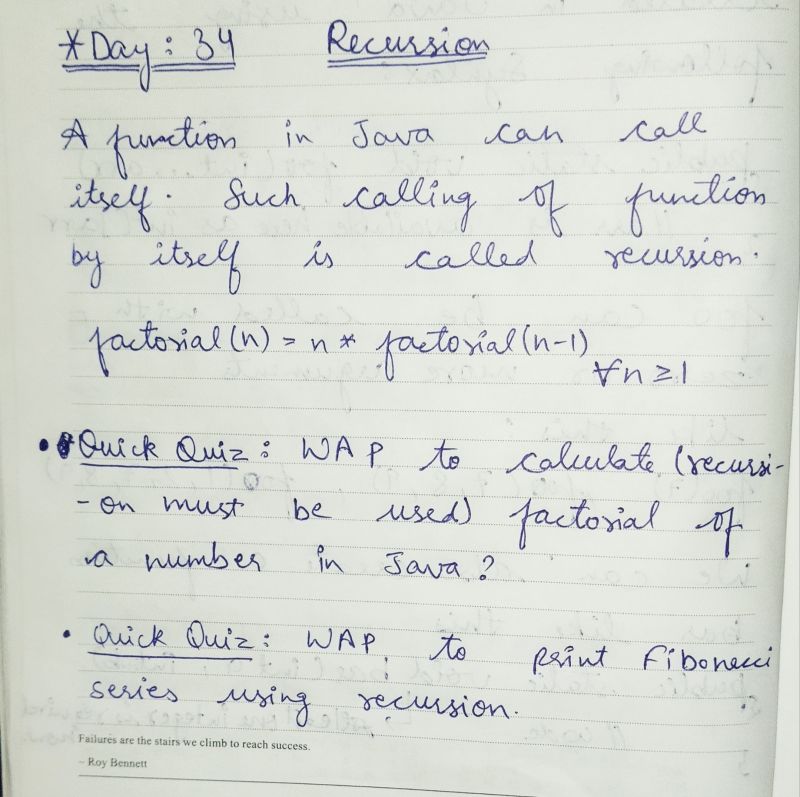 *Day: 34 Recussion
A function in Java can call
itself. Such calling of function
by itself is called recursion.
factorial(n) = n * factorial(n-1)
∀n ≥ 1
• Quick Quiz: WAP to calculate (recursi-
-on must be used) factorial of
a number in Java?
• Quick Quiz: WAP to print Fibonacci
series using recursion.
Failures are the stairs we climb to reach success.
~ Roy Bennett